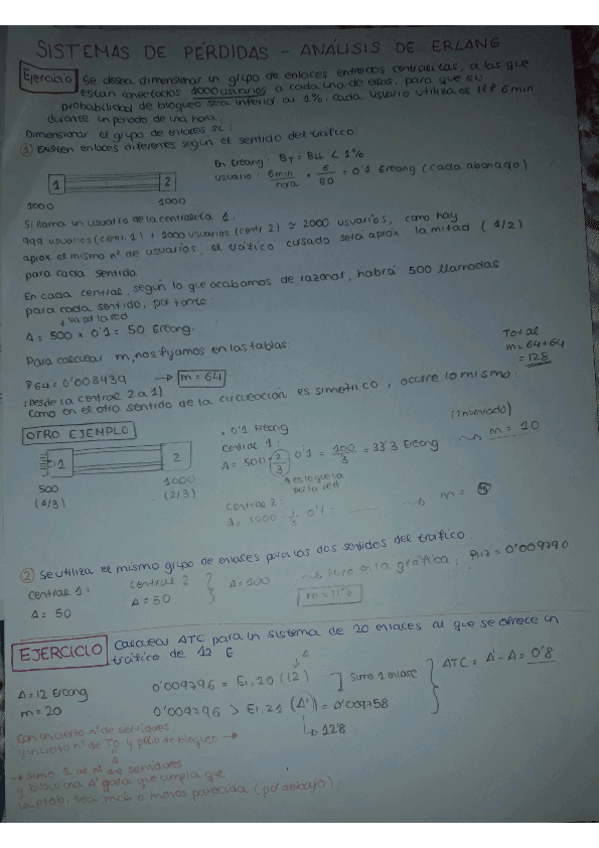 SISTEMAS DE PÉRDIDAS - ANÁLISIS DE ERLANG
Ejercicio Se desea dimensionar un grupo de enlaces entre dos centralitas, a las que
están conectados 1000 usuarios a cada una de ellas, para que su
probabilidad de bloqueo sea inferior al 1%. Cada usuario utiliza el tfº 6 min
durante un periodo de una hora.
Dimensionar el grupo de enlaces si:
① Existen enlaces diferentes según el sentido del tráfico.
En Erlang: BT = BLL < 1%
usuario: 6min/hora = 6/60 = 0'1 Erlang (cada abonado)
1 2
1000 1000
Si llama un usuario de la centralita 1:
999 usuarios (centr. 1) + 1000 usuarios (centr 2) ≃ 2000 usuarios, como hay
aprox. el mismo nº de usuarios, el tráfico cursado será aprox. la mitad (1/2)
para cada sentido.
En cada central, según lo que acabamos de razonar, habrá 500 llamadas
para cada sentido, por tanto:
va a la red
A = 500 × 0'1 = 50 Erlang.
Para calcular m, nos fijamos en las tablas:
P64 = 0'008439 → m = 64
Total
m = 64+64
= 128
(Desde la central 2 a 1)
Como en el otro sentido de la circulación es simétrico, ocurre lo mismo.
OTRO EJEMPLO
1 2
500 1000
(1/3) (2/3)
• 0'1 Erlang
Central 1:
A = 500 (2/3) 0'1 = 100/3 = 33'3 Erlang
(inventado)
m = 10
es lo que va
por la red
Central 2:
A = 1000 · 1/3 · 0'1 =
m = 8
② Se utiliza el mismo grupo de enlaces para los dos sentidos del tráfico
Central 1: central 2
A = 50 A = 50 } A = 100
miro en la gráfica: P117 = 0'009790
m = 117
EJERCICIO Calcular ATC para un sistema de 20 enlaces al que se ofrece un
tráfico de 12 E
A = 12 Erlang
m = 20
A
0'009796 = E1,20 (12)
0'009796 > E1,21 (A') = 0'009758
] Sumo 1 enlace
} ATC = A' - A = 0'8
12'8
Con un cierto nº de servidores,
y un cierto nº de To y prob de bloqueo →
A
→ Sumo 1 al nº de servidores
y busco una A' para que cumpla que
la prob. sea más o menos parecida (por debajo).